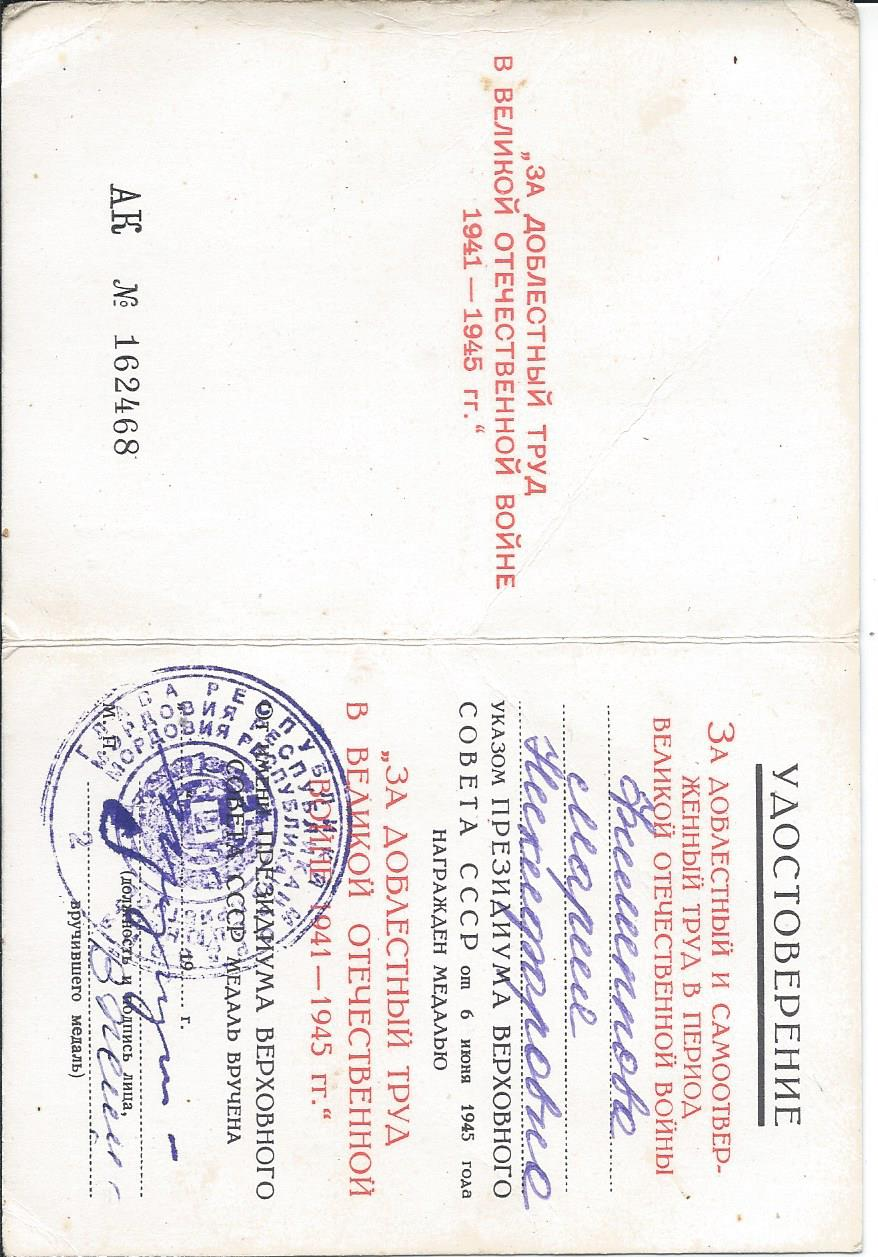 „ЗА ДОБЛЕСТНЫЙ ТРУД
В ВЕЛИКОЙ ОТЕЧЕСТВЕННОЙ ВОЙНЕ
1941—1945 гг.“
АК № 162468
УДОСТОВЕРЕНИЕ
ЗА ДОБЛЕСТНЫЙ И САМООТВЕР-
ЖЕННЫЙ ТРУД В ПЕРИОД
ВЕЛИКОЙ ОТЕЧЕСТВЕННОЙ ВОЙНЫ
Филиппова
Мария
Никифоровна
УКАЗОМ ПРЕЗИДИУМА ВЕРХОВНОГО
СОВЕТА СССР от 6 июня 1945 года
НАГРАЖДЕН МЕДАЛЬЮ
„ЗА ДОБЛЕСТНЫЙ ТРУД
В ВЕЛИКОЙ ОТЕЧЕСТВЕННОЙ
ВОЙНЕ 1941—1945 гг.“
От имени ПРЕЗИДИУМА ВЕРХОВНОГО
СОВЕТА СССР МЕДАЛЬ ВРУЧЕНА
19 г.
М. П.
(должность и подпись лица,
вручившего медаль)
ГЛАВА РЕСПУБЛИКИ
МОРДОВИЯ РЕСПУБЛИКАСЬ
МОРДОВИЯ РЕСПУБЛИКАНЬ